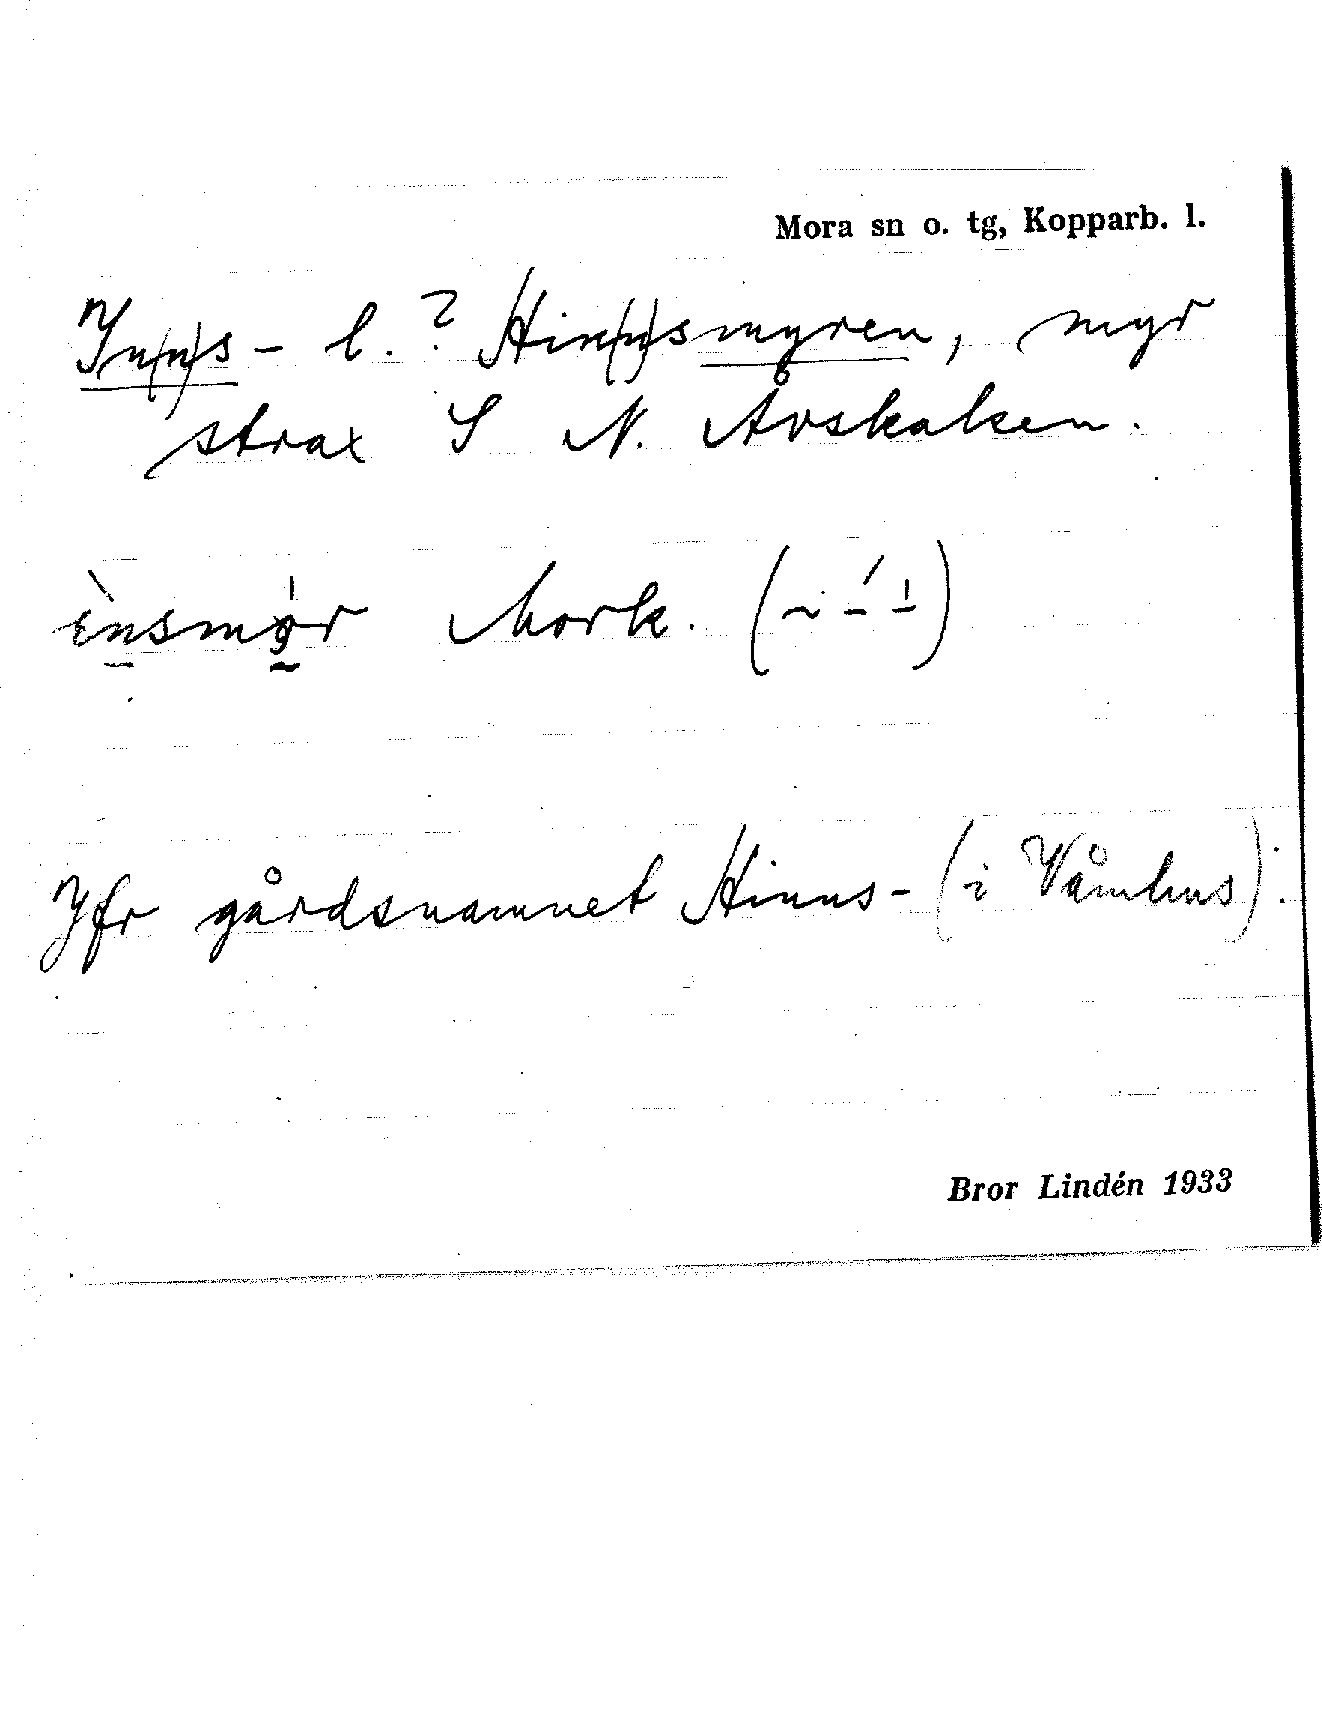 Mora sn o. tg, Kopparb. l.
In(n)s- l. ? Hin(n)smyren, myr
strax S N. Åvskaken.
Mork.
Jfr gårdsnamnet Hinns- (i Våmhus).
Bror Lindén 1933